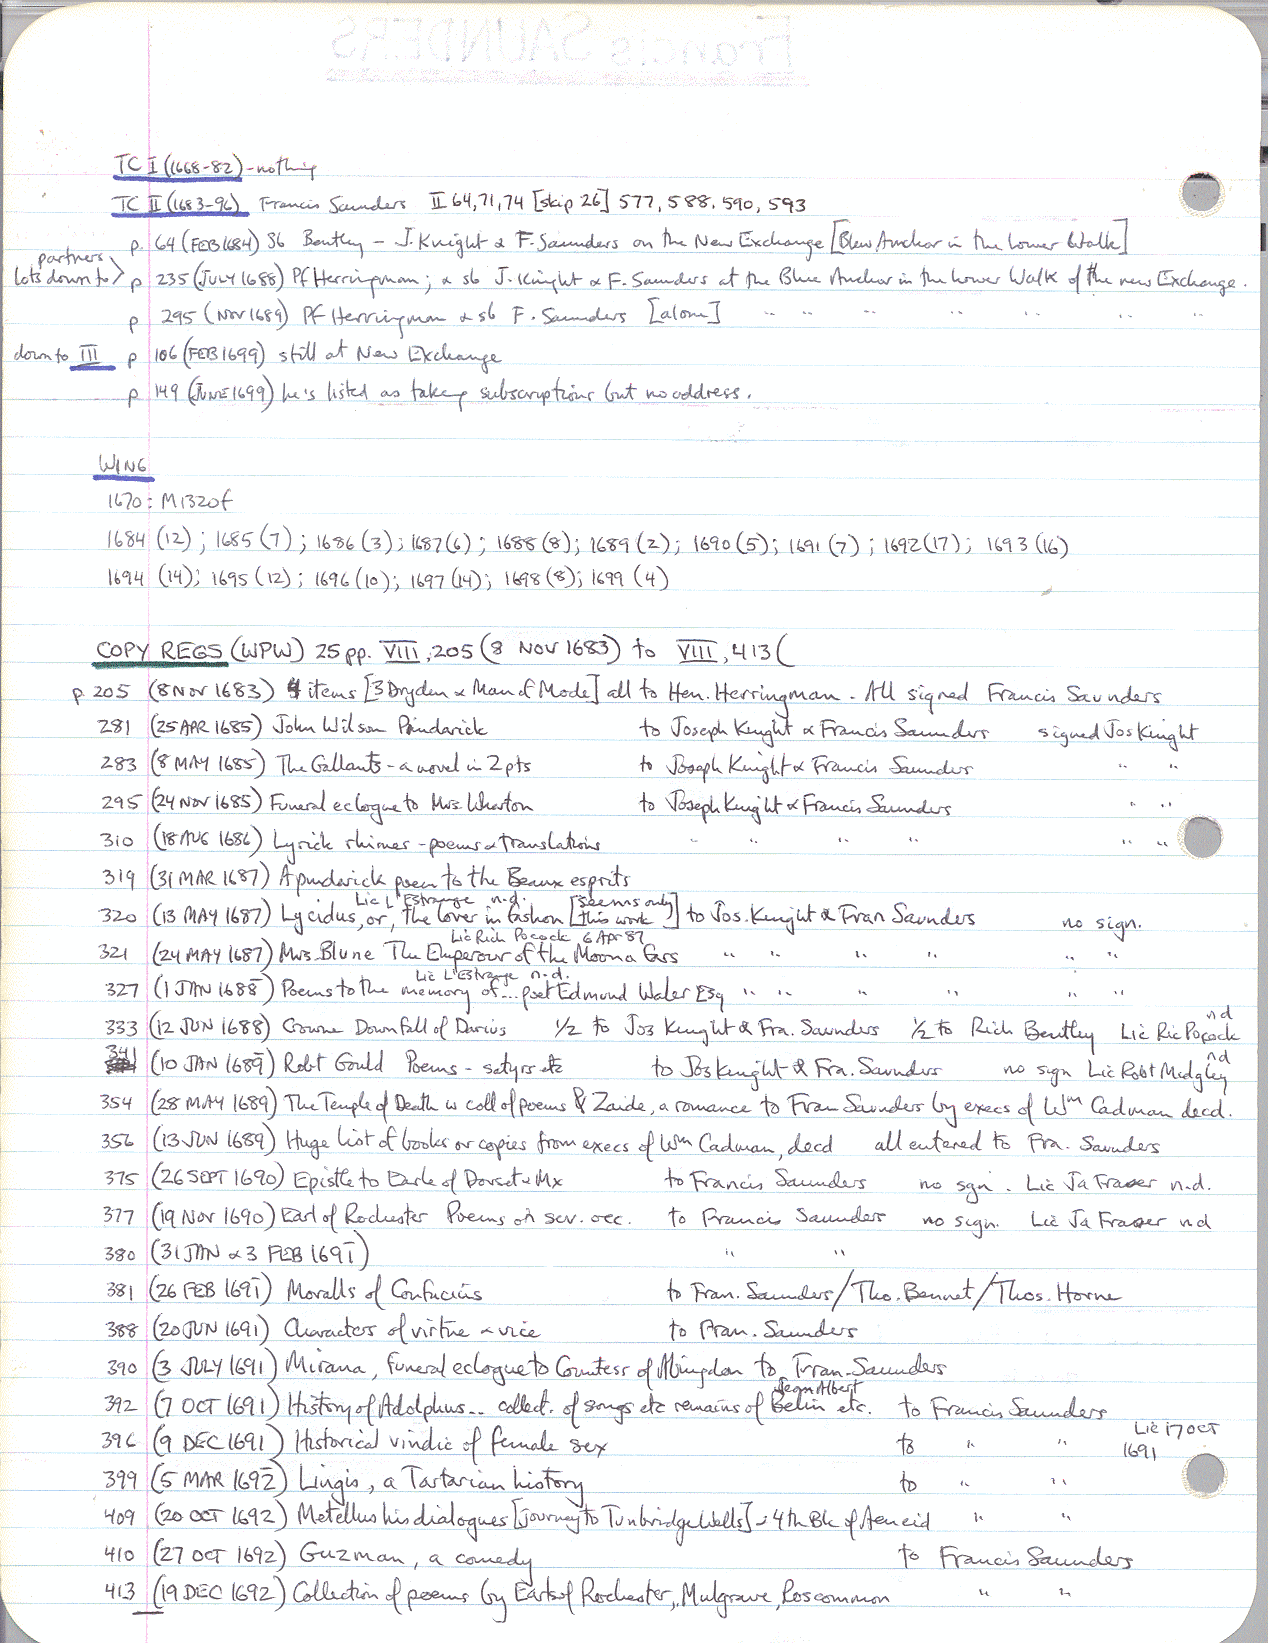 Francis SAUNDERS
TC I (1668-82) - nothing
TC II (1683-96) Francis Saunders II 64, 71, 74 [skip 26] 577, 588, 590, 593
p. 64 (FEB 1684) Bentley - J. Knight & F. Saunders on the New Exchange [Blew Anchor in the lower Walk]
partners
lots down to > p 235 (JULY 1688) Pf Herringman; & sb J. Knight & F. Saunders at the Blue Anchor in the lower Walk of the new Exchange.
p 295 (NOV 1689) Pf Herringman & sb F. Saunders [alone] " " " " " " " "
down to III p 106 (FEB 1699) still at New Exchange
p 149 (JUNE 1699) he's listed as taking subscriptions but no address.
WING
1670: M1320f
1684 (12); 1685 (7); 1686 (3); 1687 (6); 1688 (8); 1689 (2); 1690 (5); 1691 (7); 1692 (17); 1693 (16)
1694 (14); 1695 (12); 1696 (10); 1697 (14); 1698 (8); 1699 (4)
COPY REGS (WPW) 25 pp. VIII, 205 (8 NOV 1683) to VIII, 413 (
p 205 (8 NOV 1683) 4 items [3 Dryden & Man of Mode] all to Hen. Herringman - All signed Francis Saunders
281 (25 APR 1685) John Wilson Pindarick to Joseph Knight & Francis Saunders signed Jos Knight
283 (8 MAY 1685) The Gallants - a novel in 2 pts to Joseph Knight & Francis Saunders " "
295 (24 NOV 1685) Funeral eclogue to Mrs. Wharton to Joseph Knight & Francis Saunders " "
310 (18 AUG 1686) Lyrick rhimes - poems & translations " " " " " "
319 (31 MAR 1687) A pindarick poem to the Beaux esprits
Lic L'Estrange n.d.
320 (13 MAY 1687) Lycidus, or, the lover in fashon [seems only this work] to Jos. Knight & Fran Saunders no sign.
Lic Rich Pocock 6 Apr 87
321 (24 MAY 1687) Mrs. Blune The Emperour of the Moon a fars " " " " " "
Lic L'Estrange n.d.
327 (1 JAN 1688) Poems to the memory of... poet Edmund Waler Esq " " " " " "
333 (12 JUN 1688) Crowne Downfall of Darius 1/2 to Jos Knight & Fra. Saunders 1/2 to Rich Bentley Lic Ric Pocock nd
341 (10 JAN 1689) Robt Gould Poems - satyrs etc to Jos Knight & Fra. Saunders no sign Lic Robt Midgley nd
354 (28 MAY 1689) The Temple of Death w coll of poems & Zaide, a romance to Fran Saunders by execs of Wm Cadman decd.
356 (13 JUN 1689) Huge list of books or copies from execs of Wm Cadman, decd all entered to Fra. Saunders
375 (26 SEPT 1690) Epistle to Earle of Dorset & Mx to Francis Saunders no sgn. Lic Ja Fraser n.d.
377 (19 NOV 1690) Earl of Rochester Poems on sev. occ. to Francis Saunders no sign. Lic Ja Fraser nd
380 (31 JAN & 3 FEB 1691) " "
381 (26 FEB 1691) Moralls of Confucius to Fran. Saunders/Tho. Bennet/Thos. Horne
388 (20 JUN 1691) Characters of virtue & vice to Fran. Saunders
390 (3 JULY 1691) Mirana, funeral eclogue to Countess of Abingdon to Fran. Saunders
Jean Albert
392 (7 OCT 1691) History of Adolphus... collect. of songs etc remains of Belin etc. to Francis Saunders
396 (9 DEC 1691) Historical vindic of female sex to " " Lic 17 OCT 1691
399 (5 MAR 1692) Lingis, a Tartarian history to " "
409 (20 OCT 1692) Metellus his dialogues [journey to Tunbridge Wells] - 4th Bk of Aeneid " "
410 (27 OCT 1692) Guzman, a comedy to Francis Saunders
413 (19 DEC 1692) Collection of poems by Earls of Rochester, Mulgrave, Roscommon " "